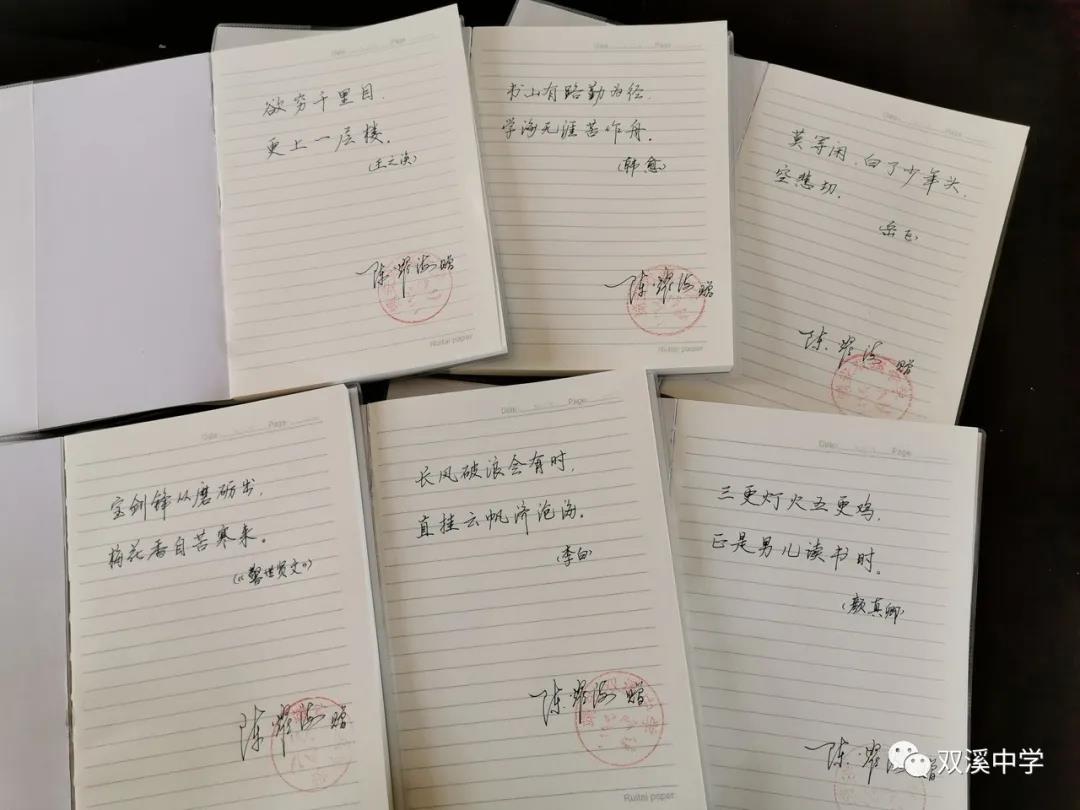 Date Page
欲穷千里目,
更上一层楼.
(王之涣)
陈耀海赠
Ruitai paper
Date Page
书山有路勤为径,
学海无涯苦作舟.
(韩愈)
陈耀海赠
Ruitai paper
Page
莫等闲,白了少年头,
空悲切.
岳飞
陈耀海赠
Date Page
宝剑锋从磨砺出,
梅花香自苦寒来。
(《警世贤文》)
陈耀海赠
Date Page
长风破浪会有时,
直挂云帆济沧海.
(李白)
陈耀海赠
Ruitai paper
Date Page
三更灯火五更鸡,
正是男儿读书时.
(颜真卿)
陈耀海赠
双溪中学